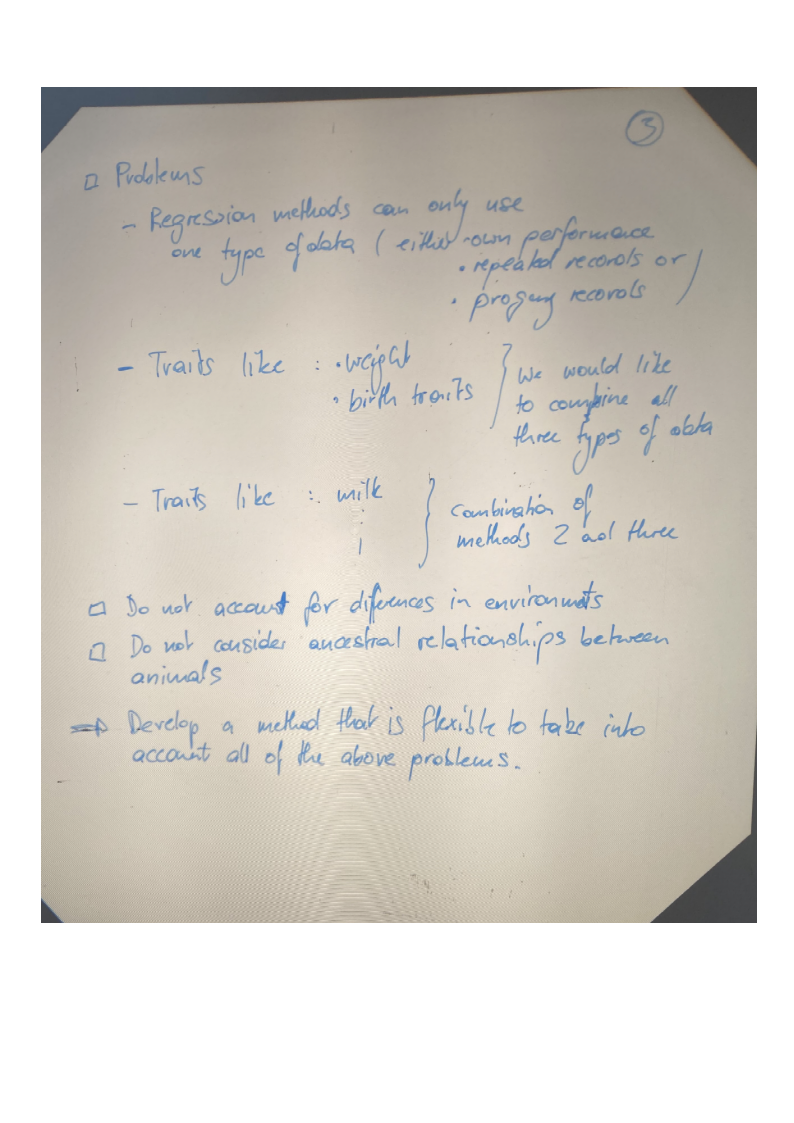 3
□ Problems
- Regression methods can only use
one type of data ( either · own performance
· repeated records or
· progeny records )
- Traits like : · weight
· birth traits
} We would like
to combine all
three types of data
- Traits like : milk
⋮
} Combination of
methods 2 ad three
□ Do not account for diferences in environmets
□ Do not consider ancestral relationships between
animals
⇒ Develop a method that is flexible to take into
account all of the above problems.